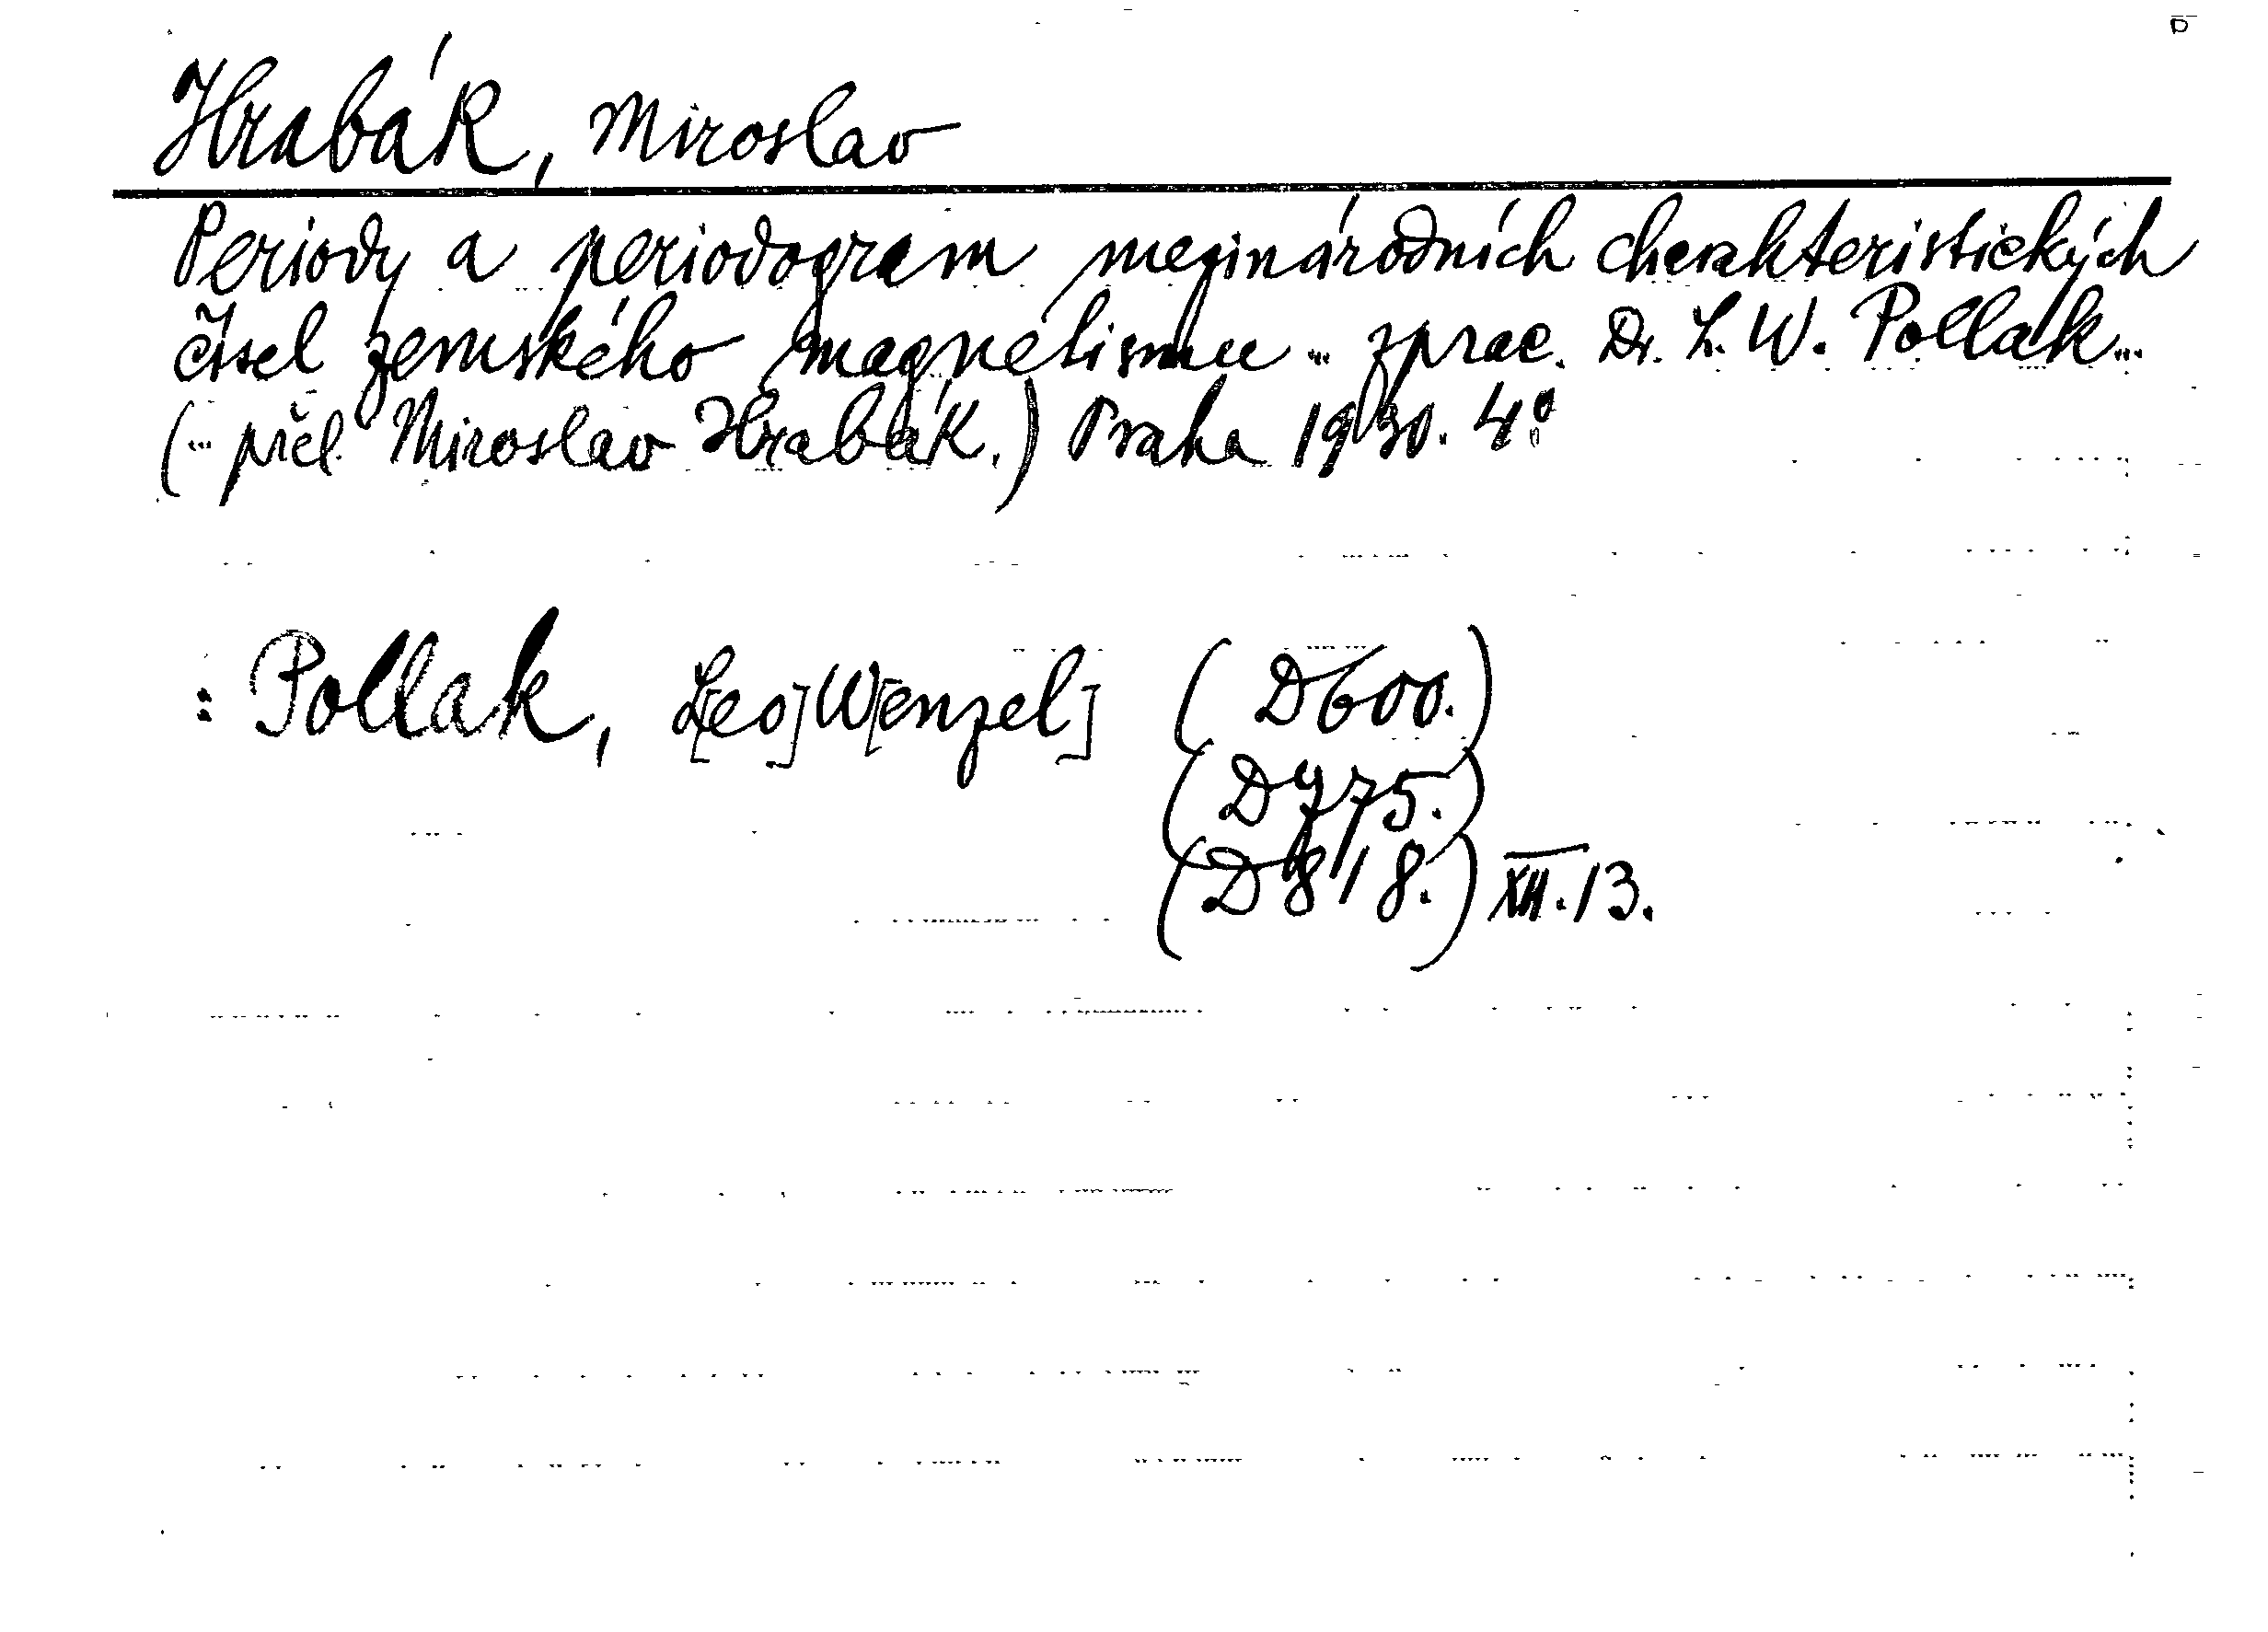 Hrabák, Miroslav
Periody a periodogram mezinárodních charakteristických
čísel zemského magnetismu ... zprac. Dr. L. W. Pollak ...
(... přel. Miroslav Hrabák.) Praha 1930. 4°.
: Pollak, L[eo] W[enzel] (D600.)
(D775.)
(D818.) XII.13.